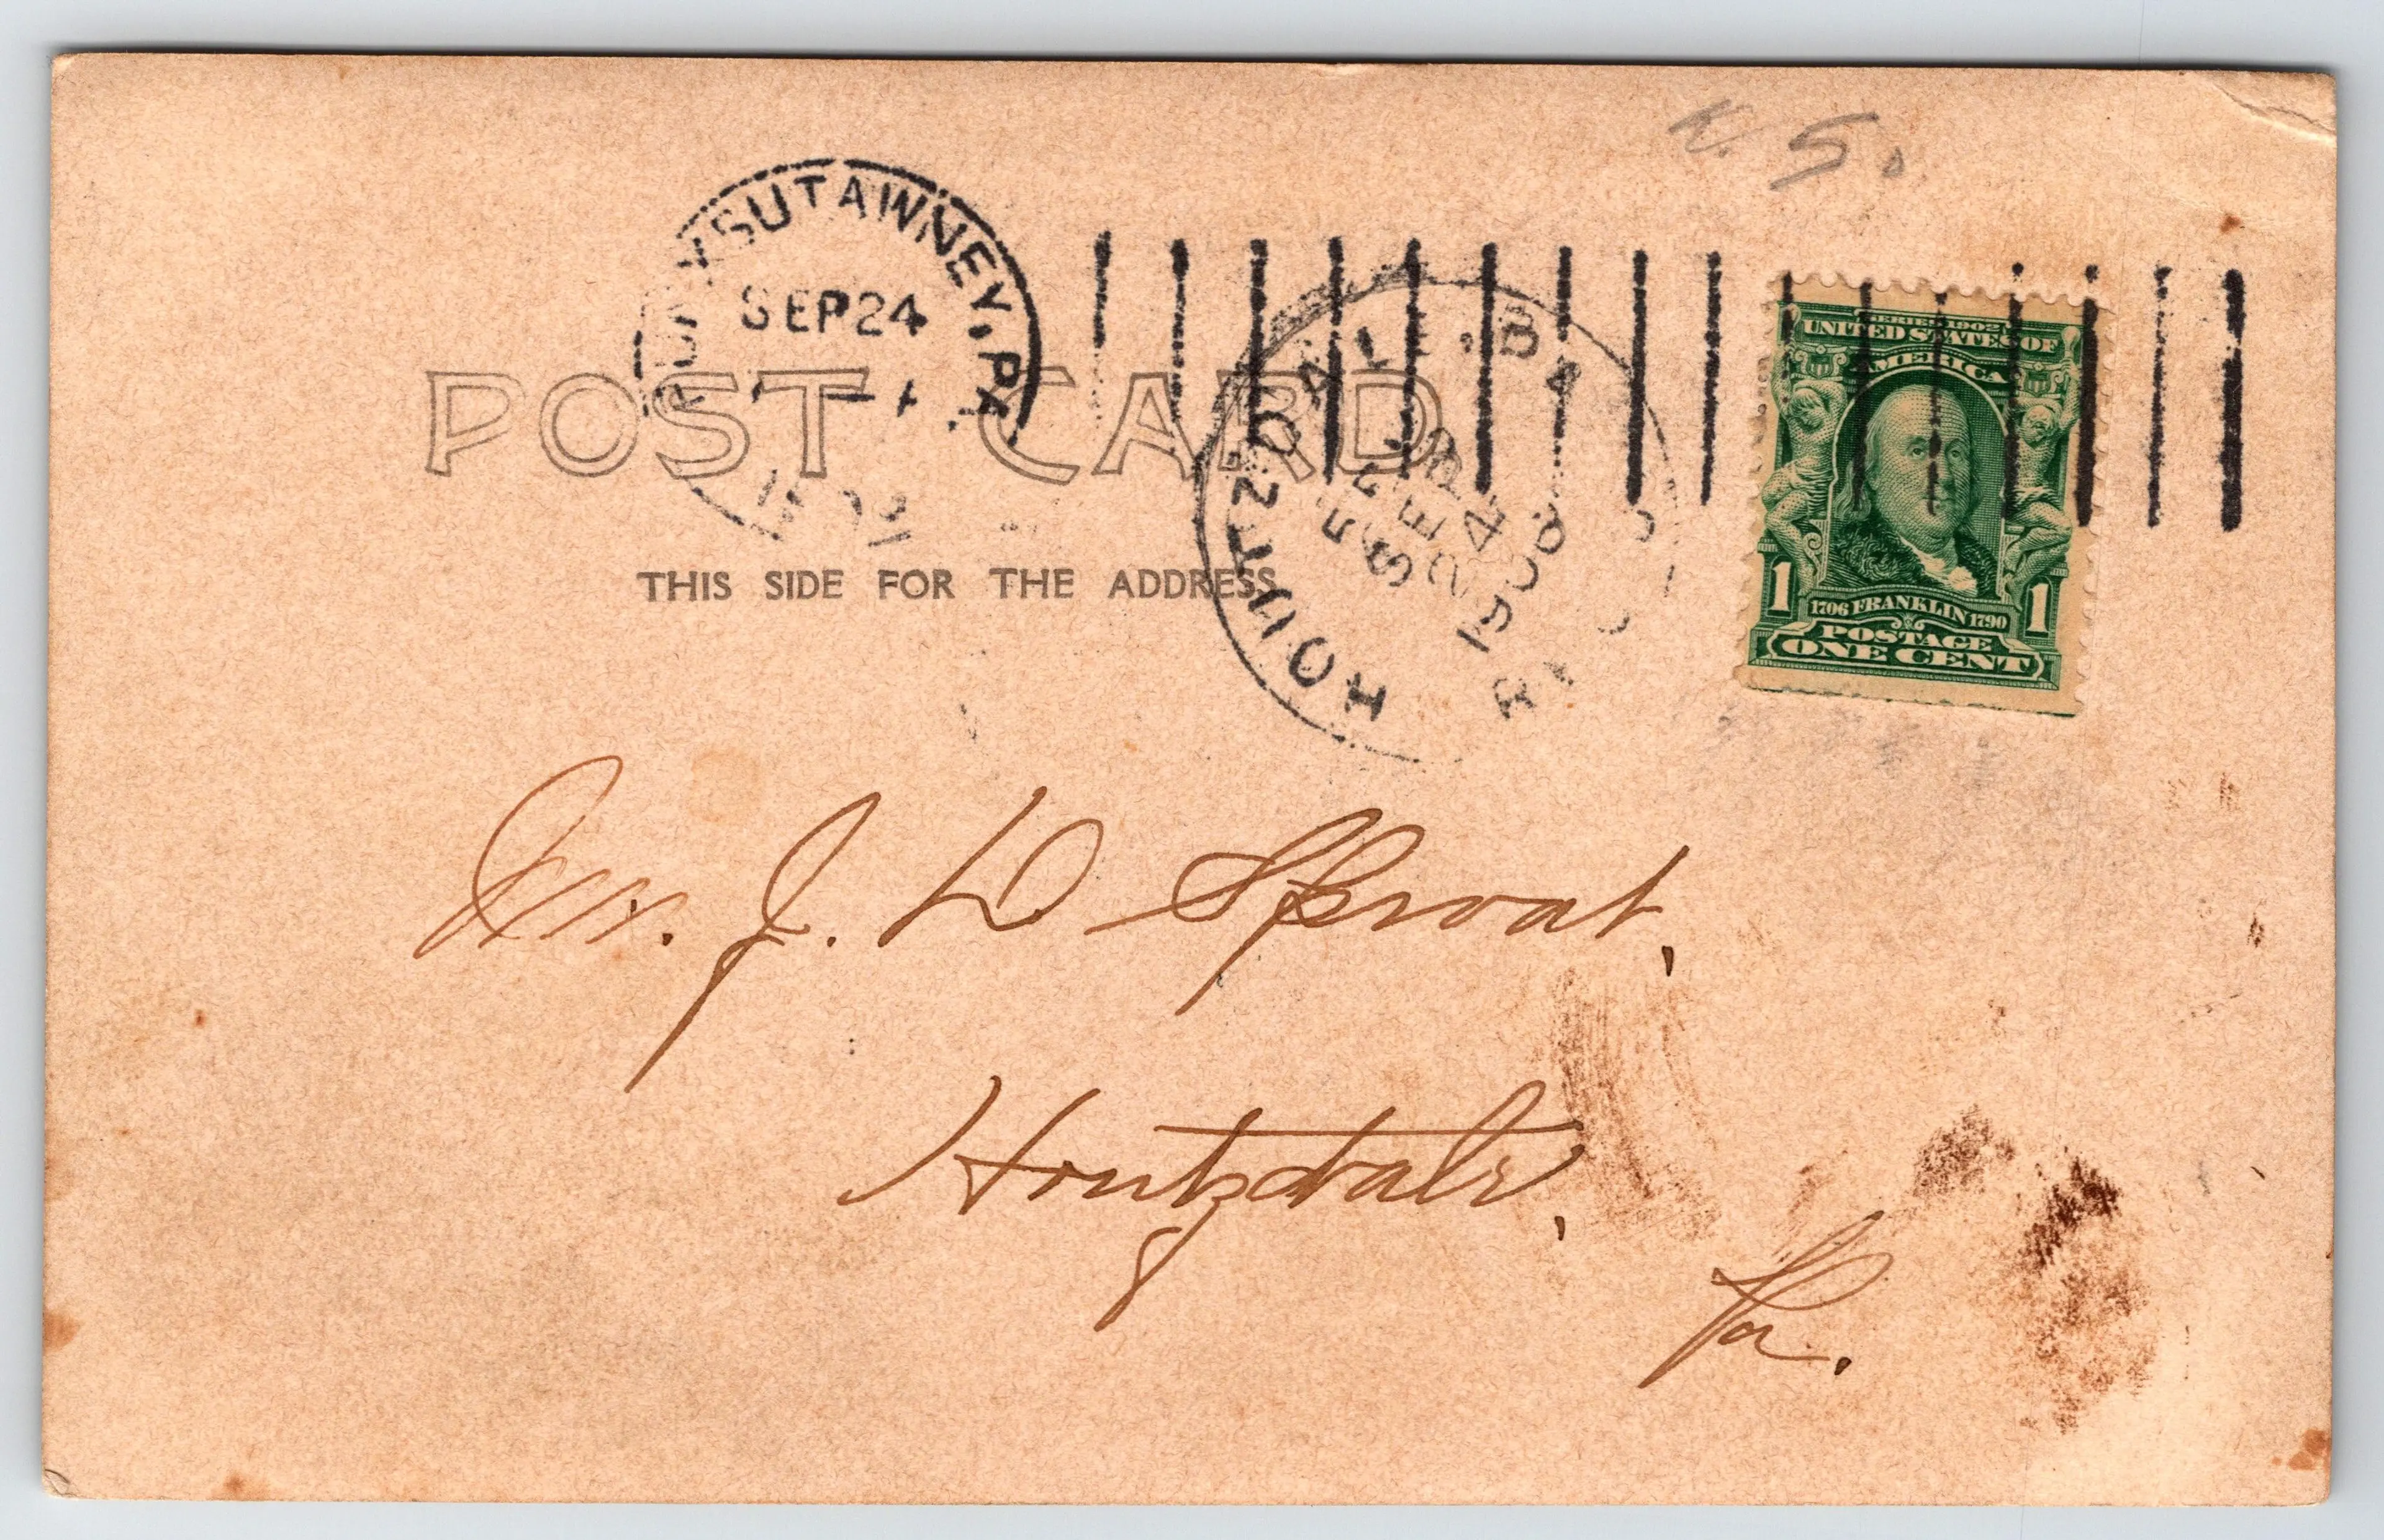 5
PUNXSUTAWNEY, PA.
SEP 24
POST CARD
THIS SIDE FOR THE ADDRESS
HOUTZDALE, PA
SEP
24
1908
SERIES 1902
UNITED STATES OF
AMERICA
1 1
1706 FRANKLIN 1790
POSTAGE
ONE CENT
J. D Sproat,
Houtzdale,
Pa.